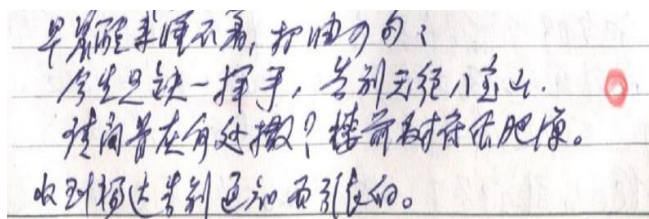 早晨醒来睡不着,打油句:
今生只缺一挥手,告别无八宝山.
请问骨灰何处撒?楼前树作肥源。
收到杨达告别通知而引发的。